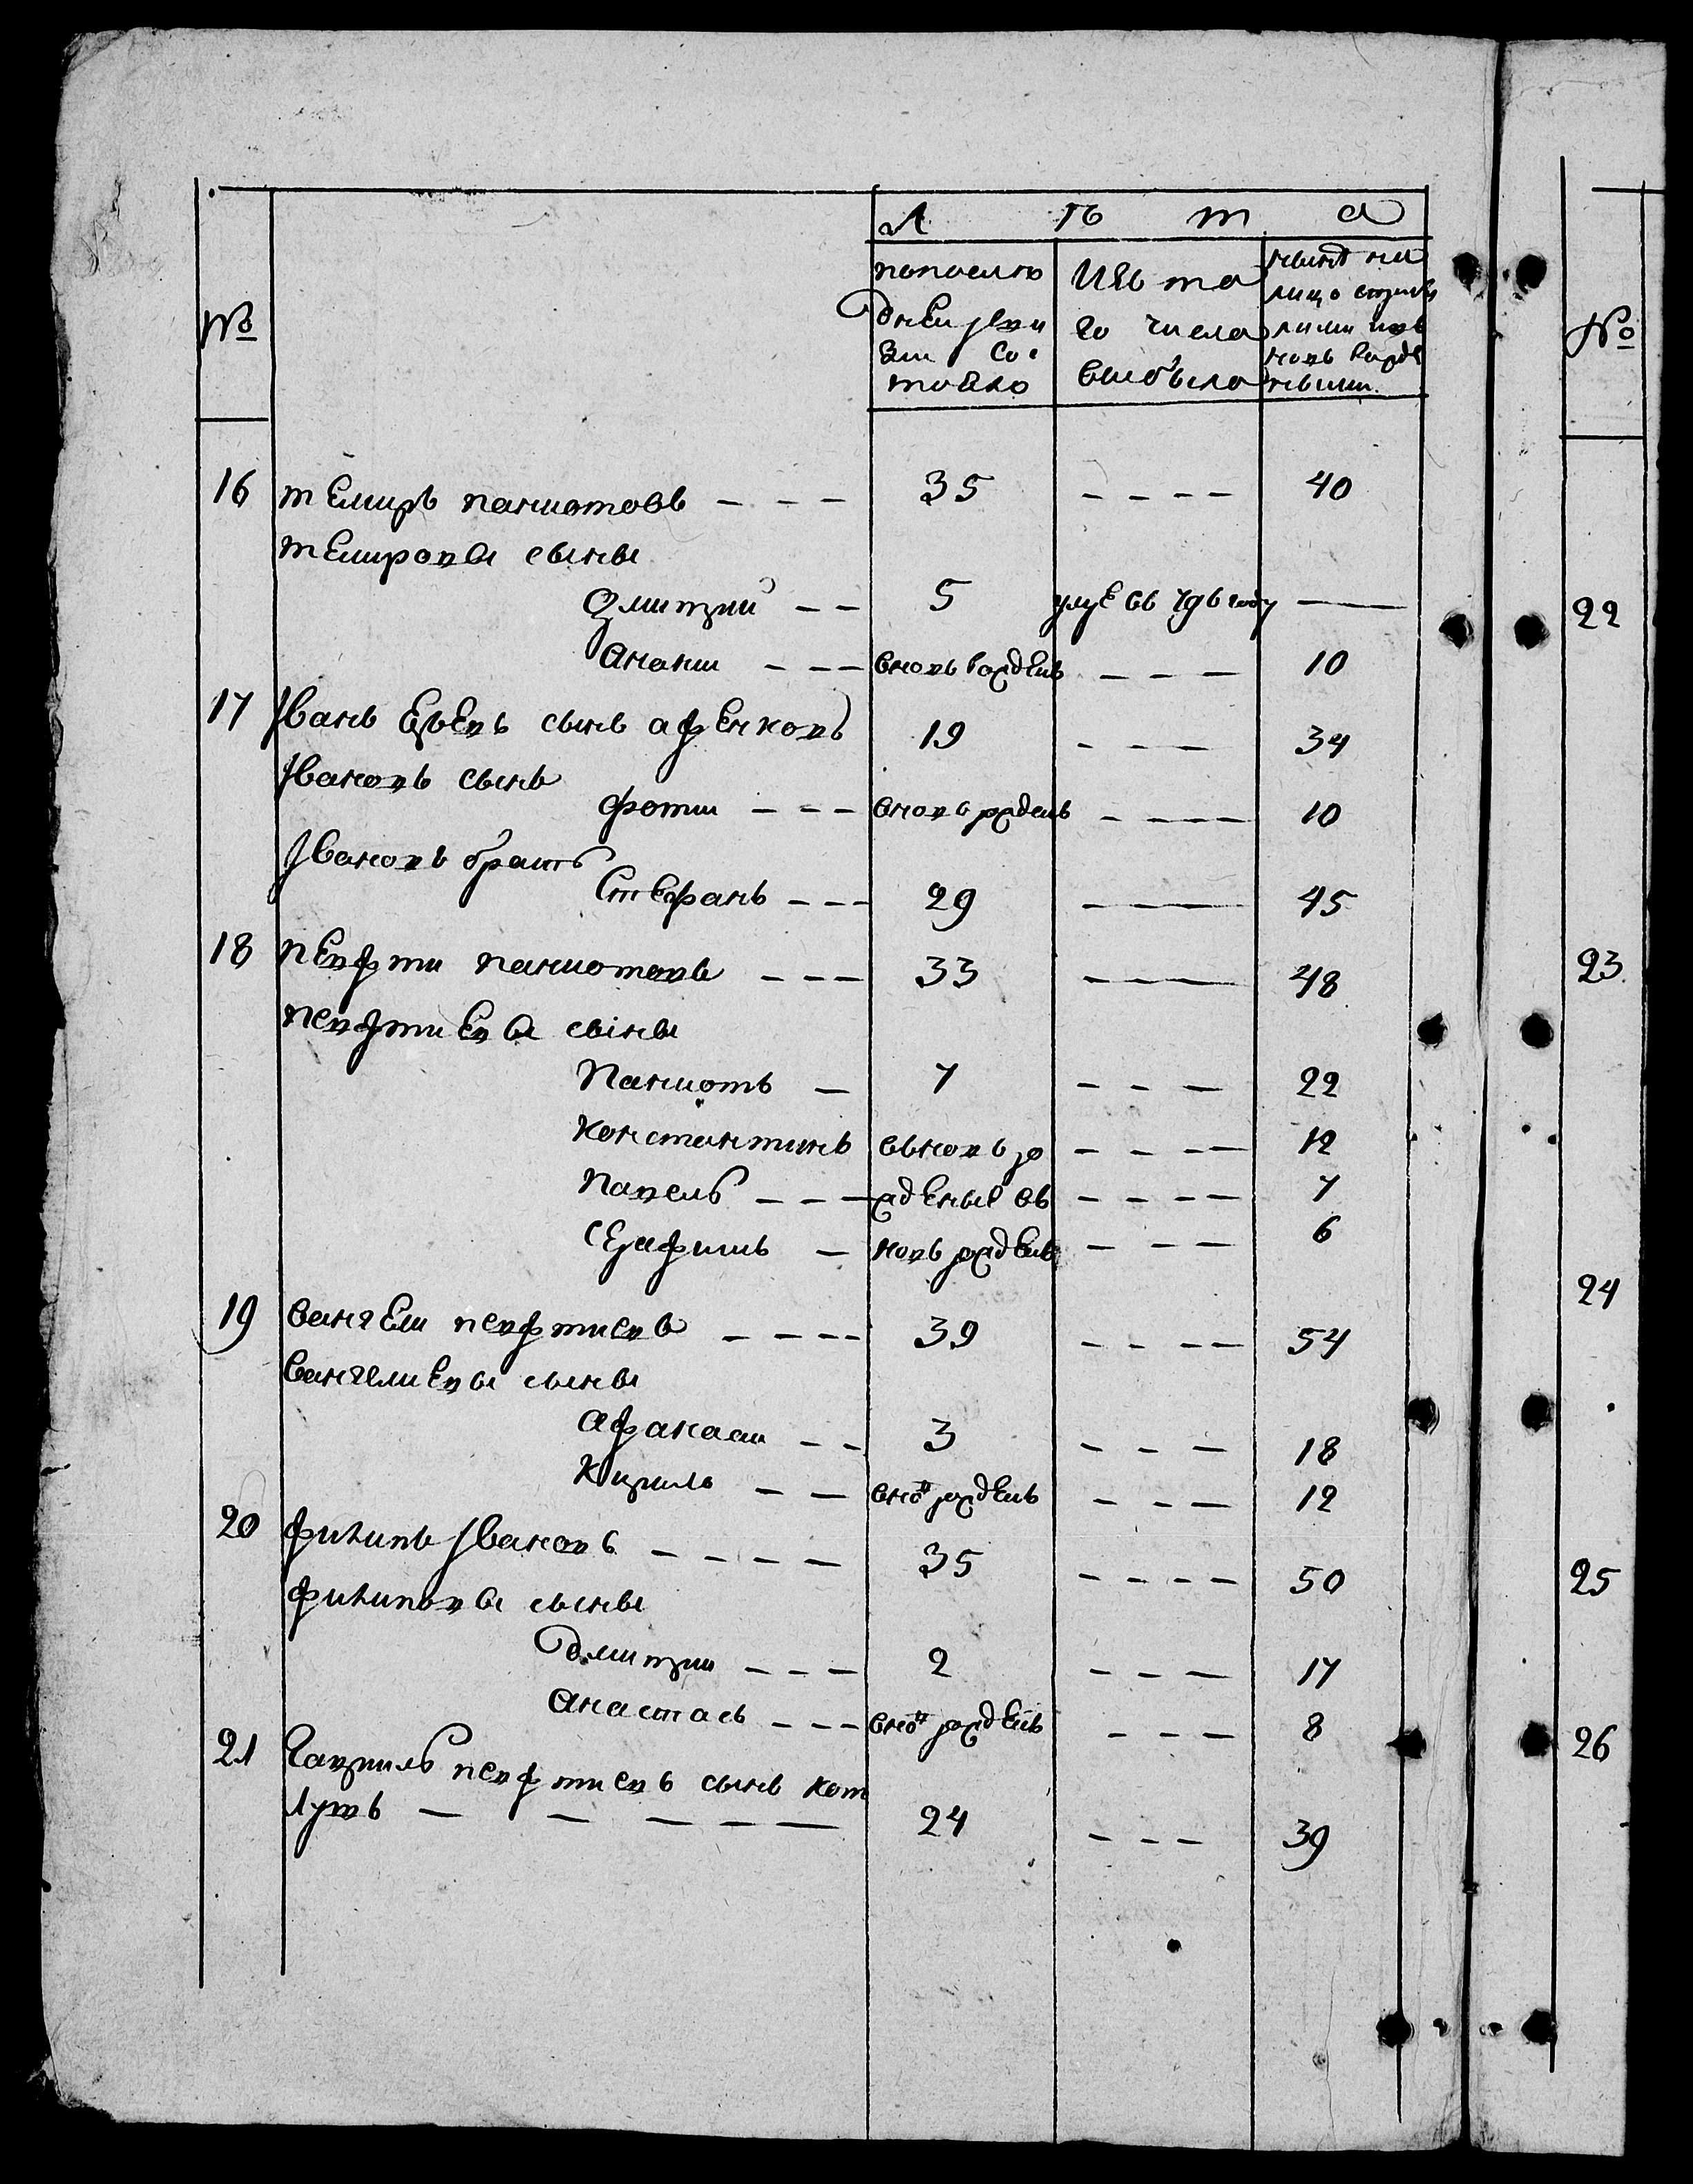 Л ѣ т а
№
попослѣ
дней реви
зіи со
тояло
Изъ то
го числа
выбыло
нынѣ на
лицо
новь рожде
ными
№
16 темиръ паниотовъ — — — 35 — — — — 40
темировы сыны
Дмитрий — — 5 умре въ 796 году —
Анани — — — вновь рожденъ — — — 10
17 Іванъ сынъ афенковъ 19 — — — 34
Івановъ сынъ
фоти — — — вновь рожденъ — — — — 10
Івановъ братъ
Стефанъ — — — 29 — — — 45
18 пефти паниотовъ — — — 33 — — — 48
пефтиевы сыны
Паниотъ — 7 — — — 22
Константинъ вьновь ро — — — — 12
Павелъ — — — жденые въ — — — — 7
Серафимъ — новь рожденъ — — — 6
19 вангели пефтиевъ — — — — 39 — — — — 54
вангелиевы сыны
Афанаси — — 3 — — — 18
Кирилъ — — вновь рожденъ — — — 12
20 филипъ Івановъ — — — — 35 — — — — 50
филиповы сыны
Дмитри — — — 2 — — — 17
Анастасъ — — — вновь рожденъ — — — 8
21 Гаврилъ пефтиевъ сынъ кот
лувъ — — — — — 24 — — — 39
22
23
24
25
26